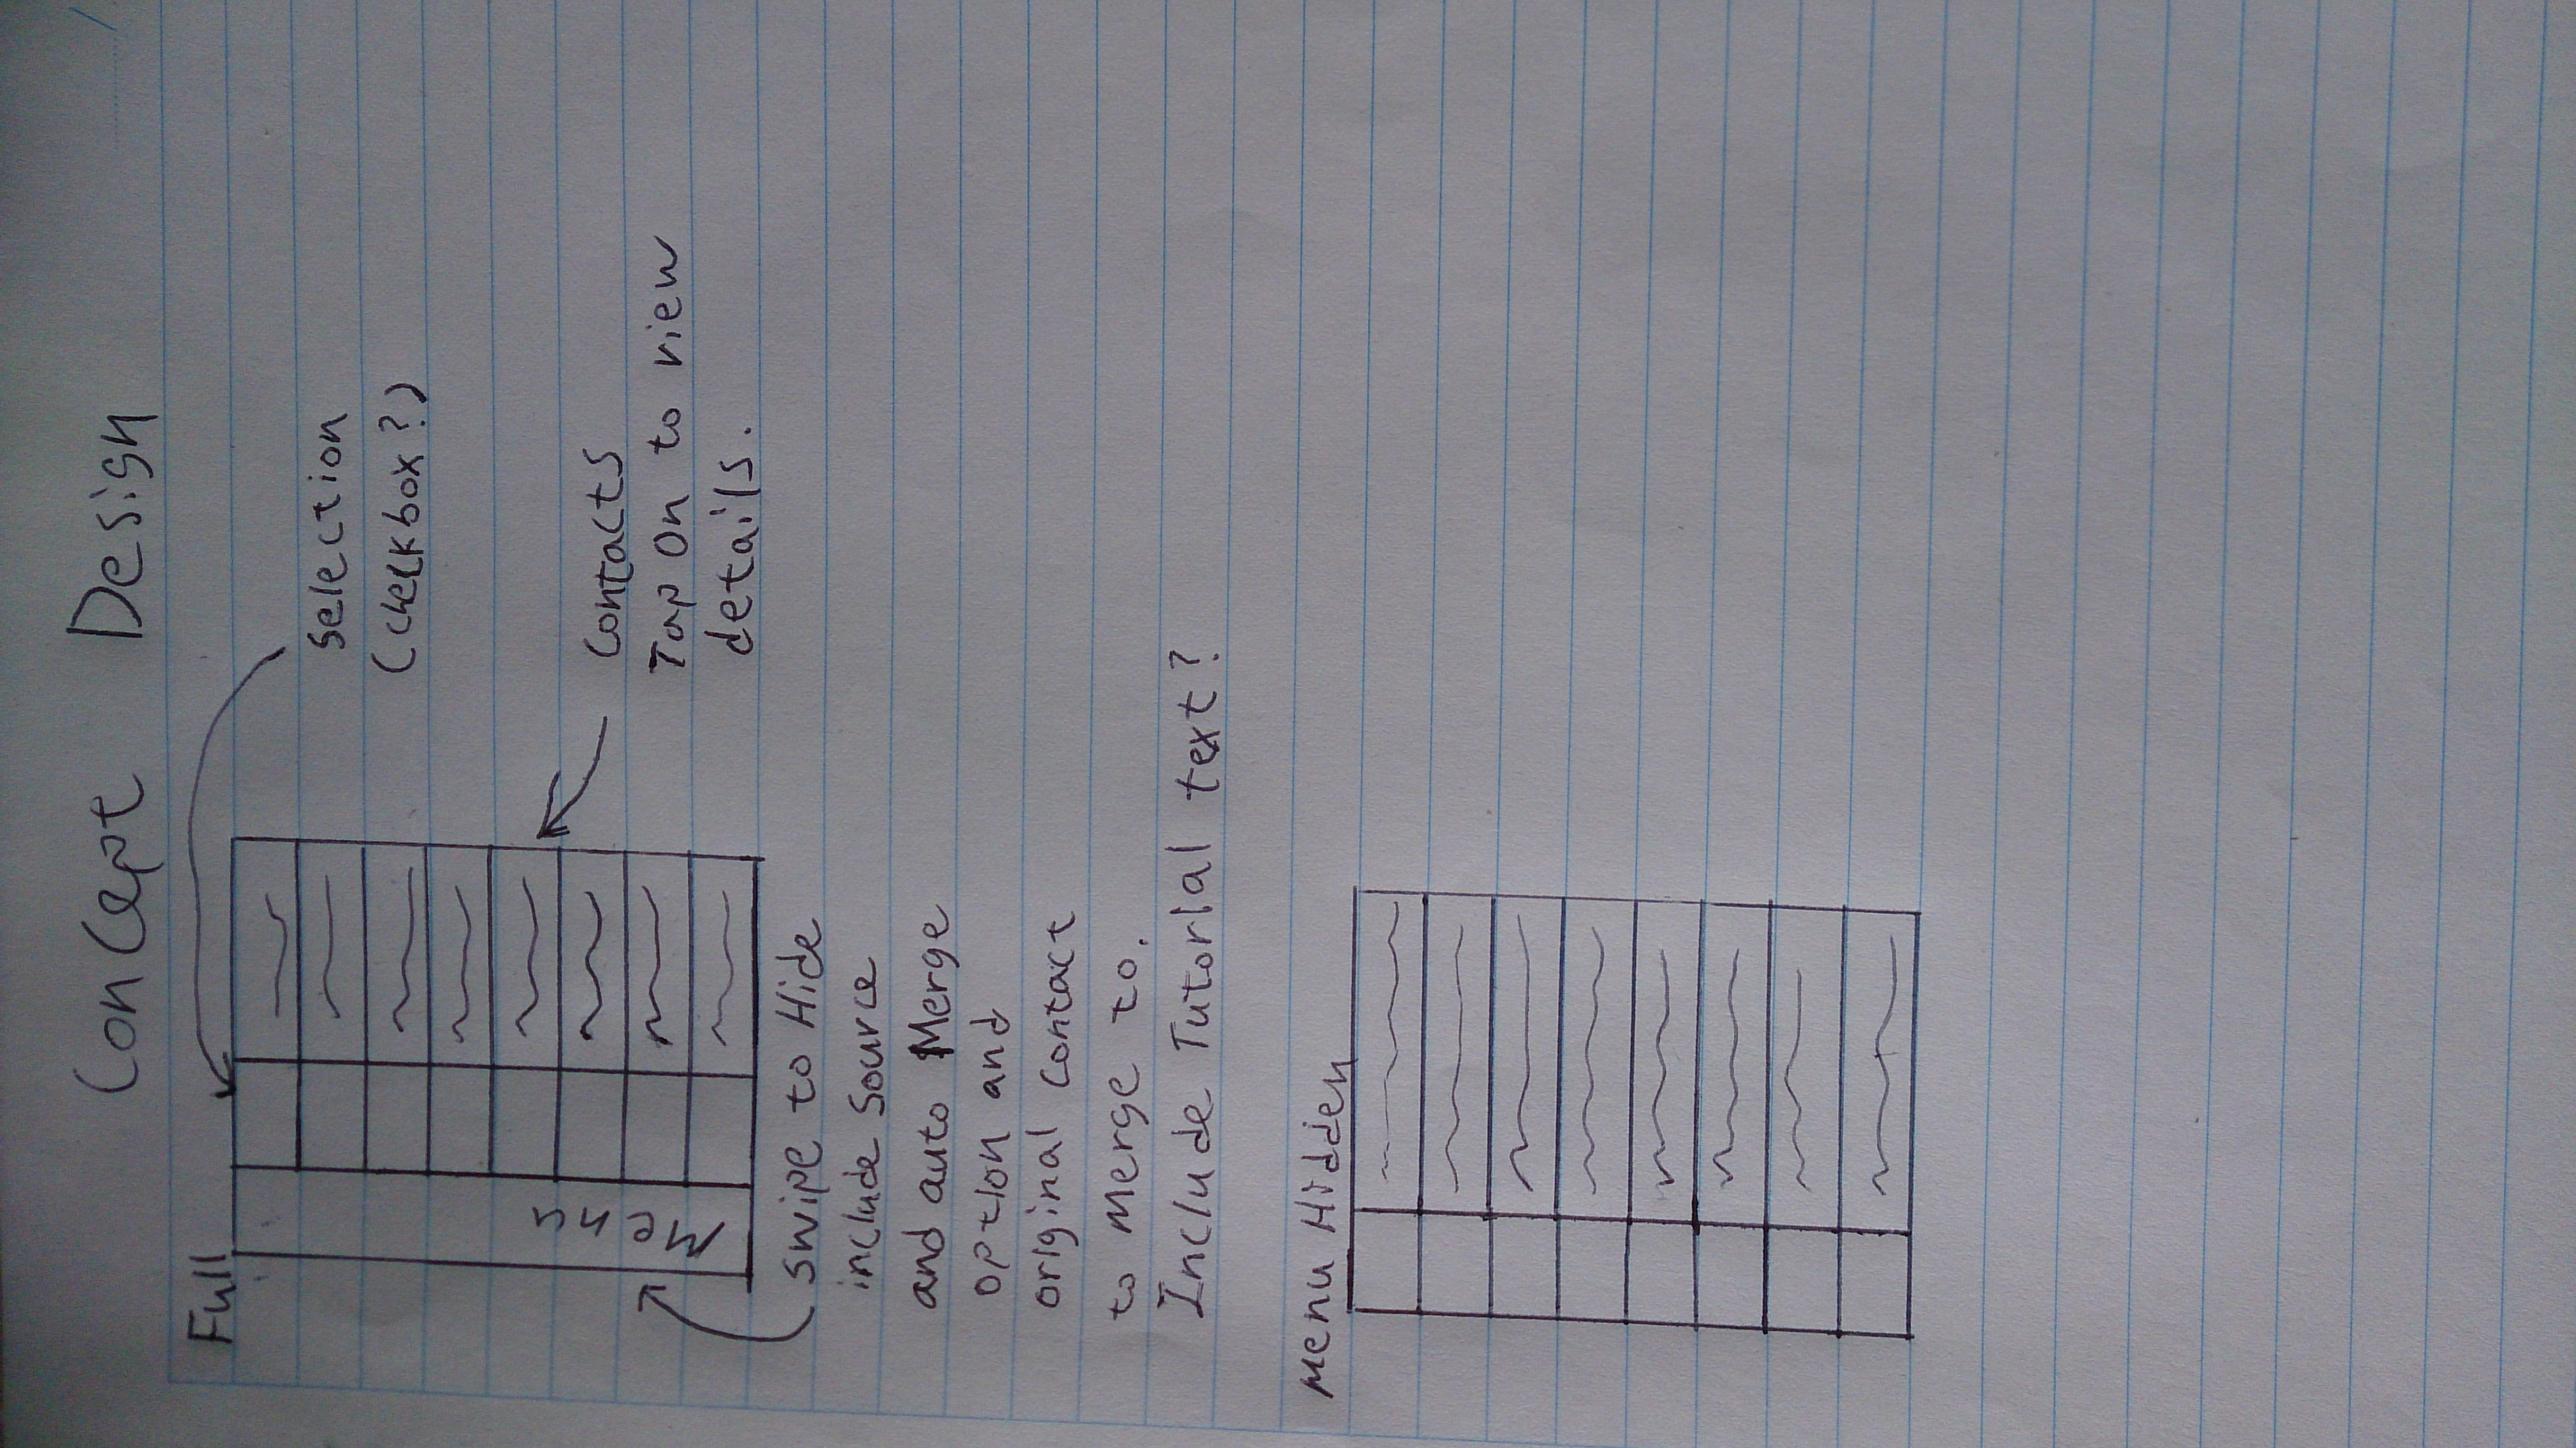 Concept Design
Full
Selection
(Checkbox?)
Contacts
Tap On to view
details.
Swipe to Hide
include source
and auto Merge
option and
original contact
to merge to.
Include Tutorial text?
Menu Hidden